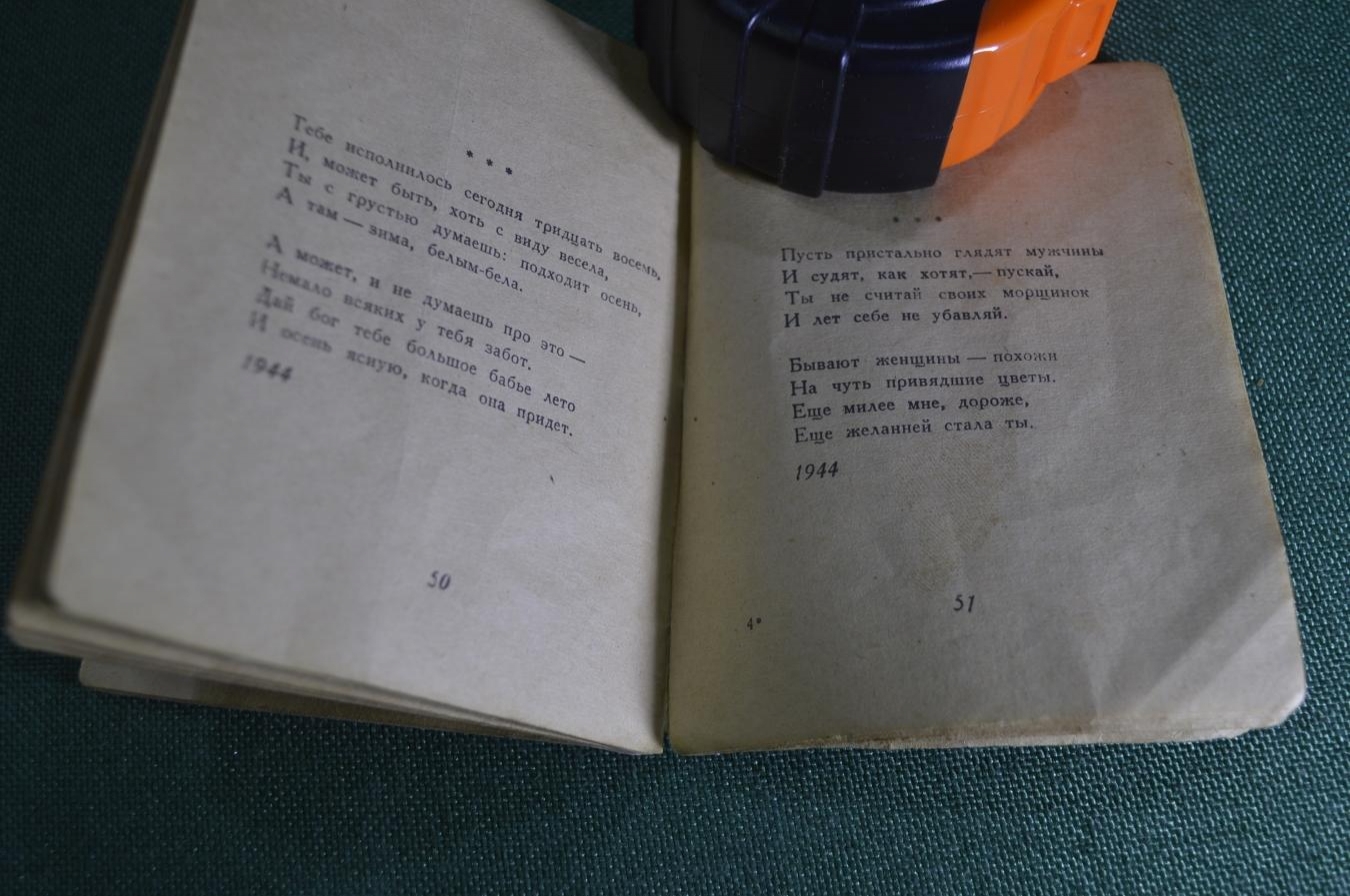 * * *
Тебе исполнилось сегодня тридцать восемь,
И, может быть, хоть с виду весела,
Ты с грустью думаешь: подходит осень,
А там — зима, белым-бела.
А может, и не думаешь про это —
Немало всяких у тебя забот.
Дай бог тебе большое бабье лето
И осень ясную, когда она придет.
1944
50
* * *
Пусть пристально глядят мужчины
И судят, как хотят,— пускай,
Ты не считай своих морщинок
И лет себе не убавляй.
Бывают женщины — похожи
На чуть привядшие цветы.
Еще милее мне, дороже,
Еще желанней стала ты.
1944
51
4*